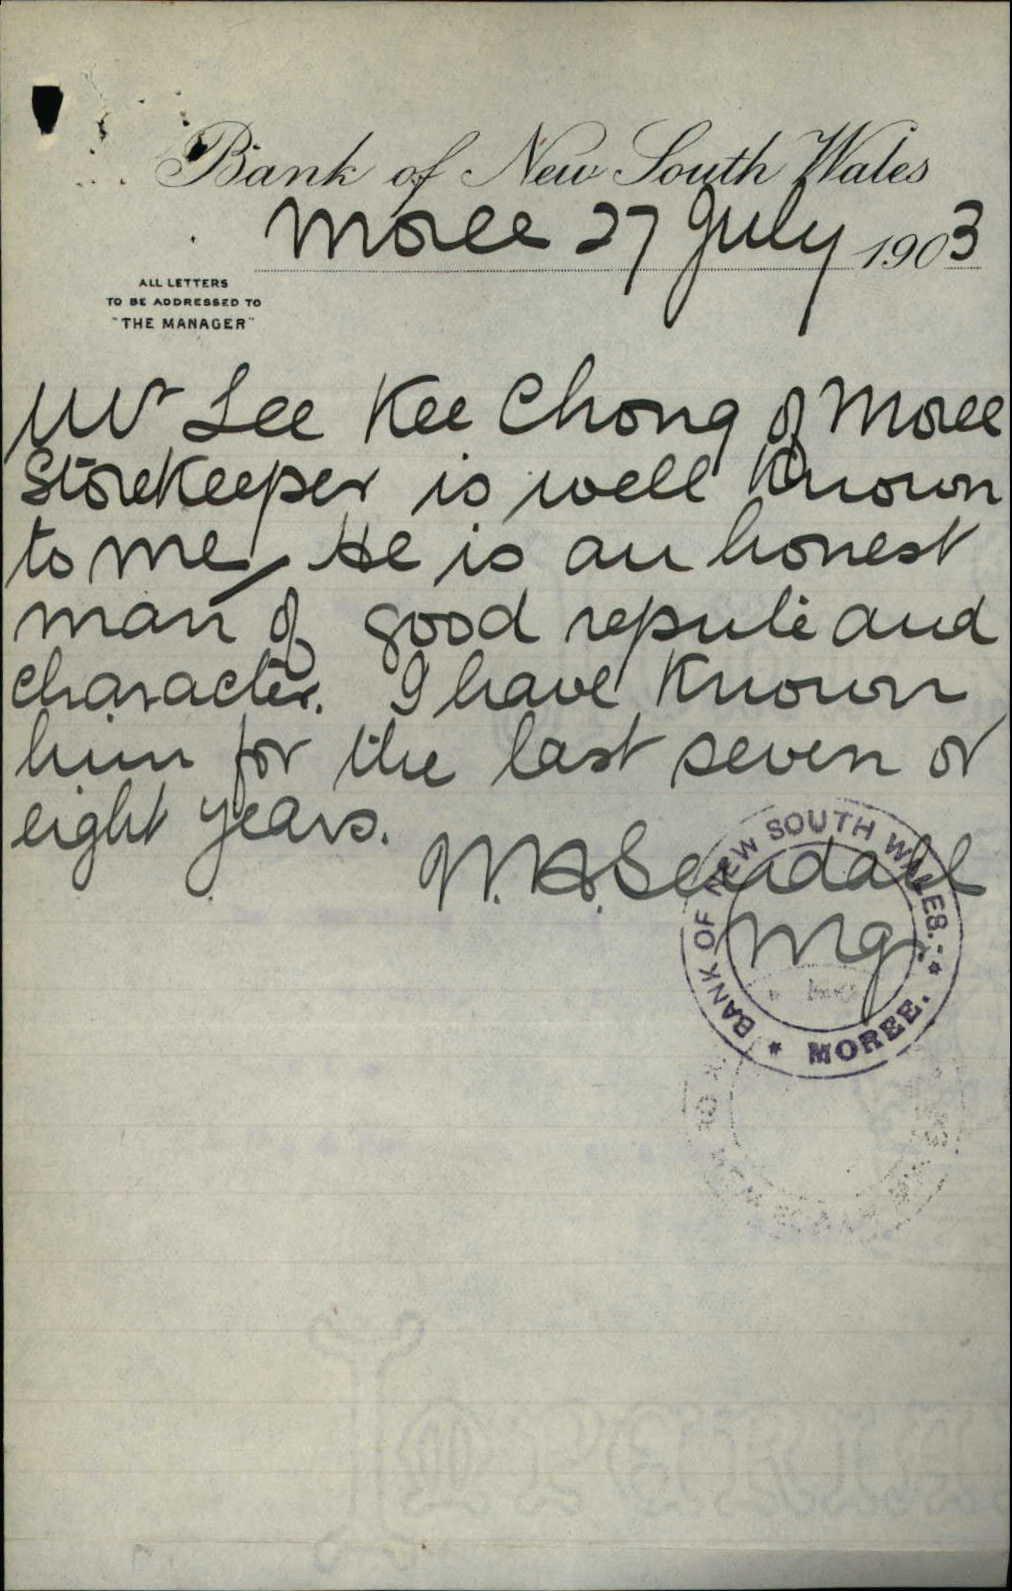 Bank of New South Wales
Moree 27 July 1903
ALL LETTERS
TO BE ADDRESSED TO
"THE MANAGER"
Mr Lee Kee Chong of Moree
Storekeeper is well known
to me, He is an honest
man of good repute and
character. I have known
him for the last seven or
eight years.
W. A. Sendall
Mgr
BANK OF NEW SOUTH WALES.
* MOREE. *